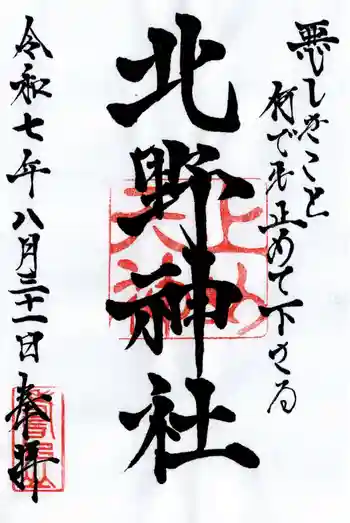 悪しきこと
何でも止めて下さる
北野神社
止め
天神
令和七年八月三十一日 奉拝